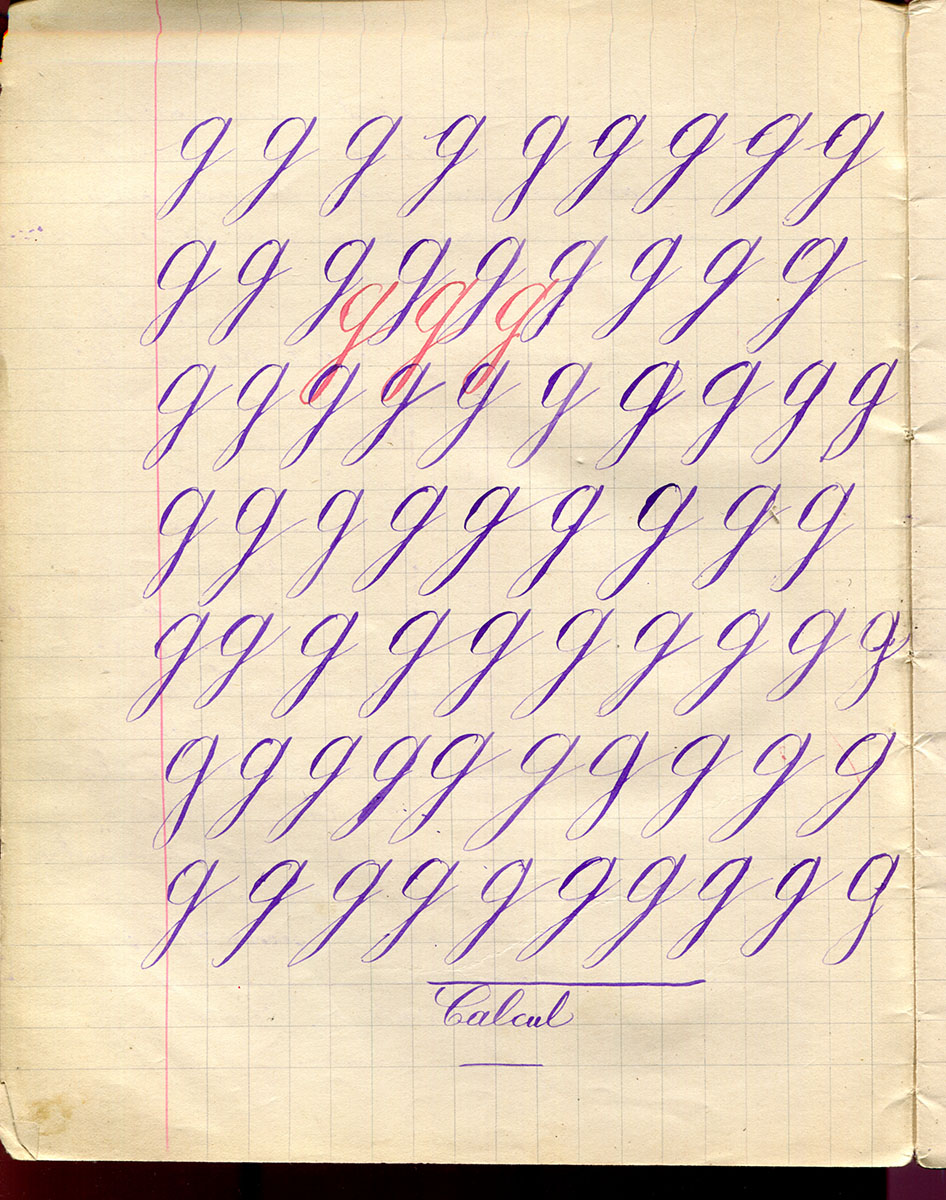 g g g g g g g g g
g g g g g g g g g
g g g
g g g g g g g g g g
g g g g g g g g g
g g g g g g g g g g
g g g g g g g g g g
g g g g g g g g g g
Calcul